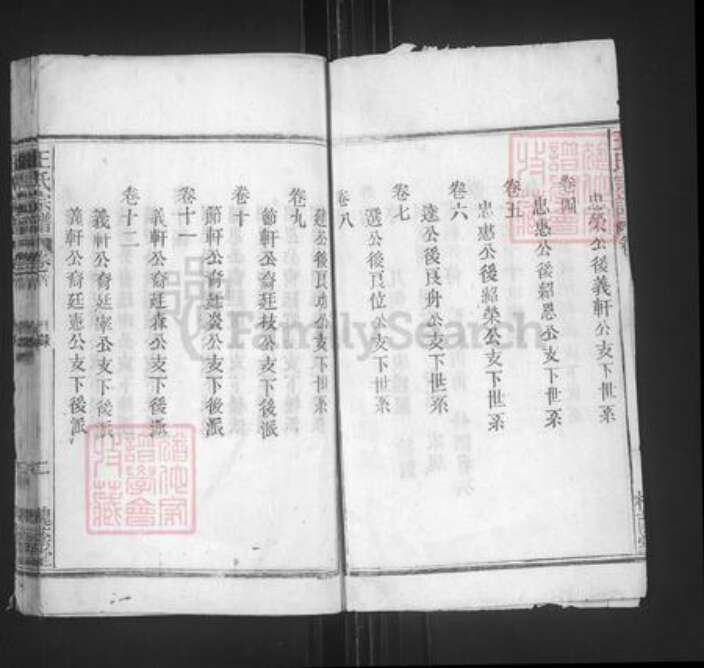 忠榮公後義軒公支下世系
卷四
忠惠公後紹恩公支下世系
卷五
忠惠公後紹榮公支下世系
卷六
達公後良舟公支下世系
卷七
選公後良位公支下世系
卷八
建公後良功公支下世系
卷九
節軒公裔廷枝公支下後派
卷十
節軒公裔廷炎公支下後派
卷十一
義軒公裔廷森公支下後派
卷十二
義軒公裔廷寧公支下後派
義軒公裔廷憲公支下後派
王氏宗譜
FamilySearch
譜學會
珍藏